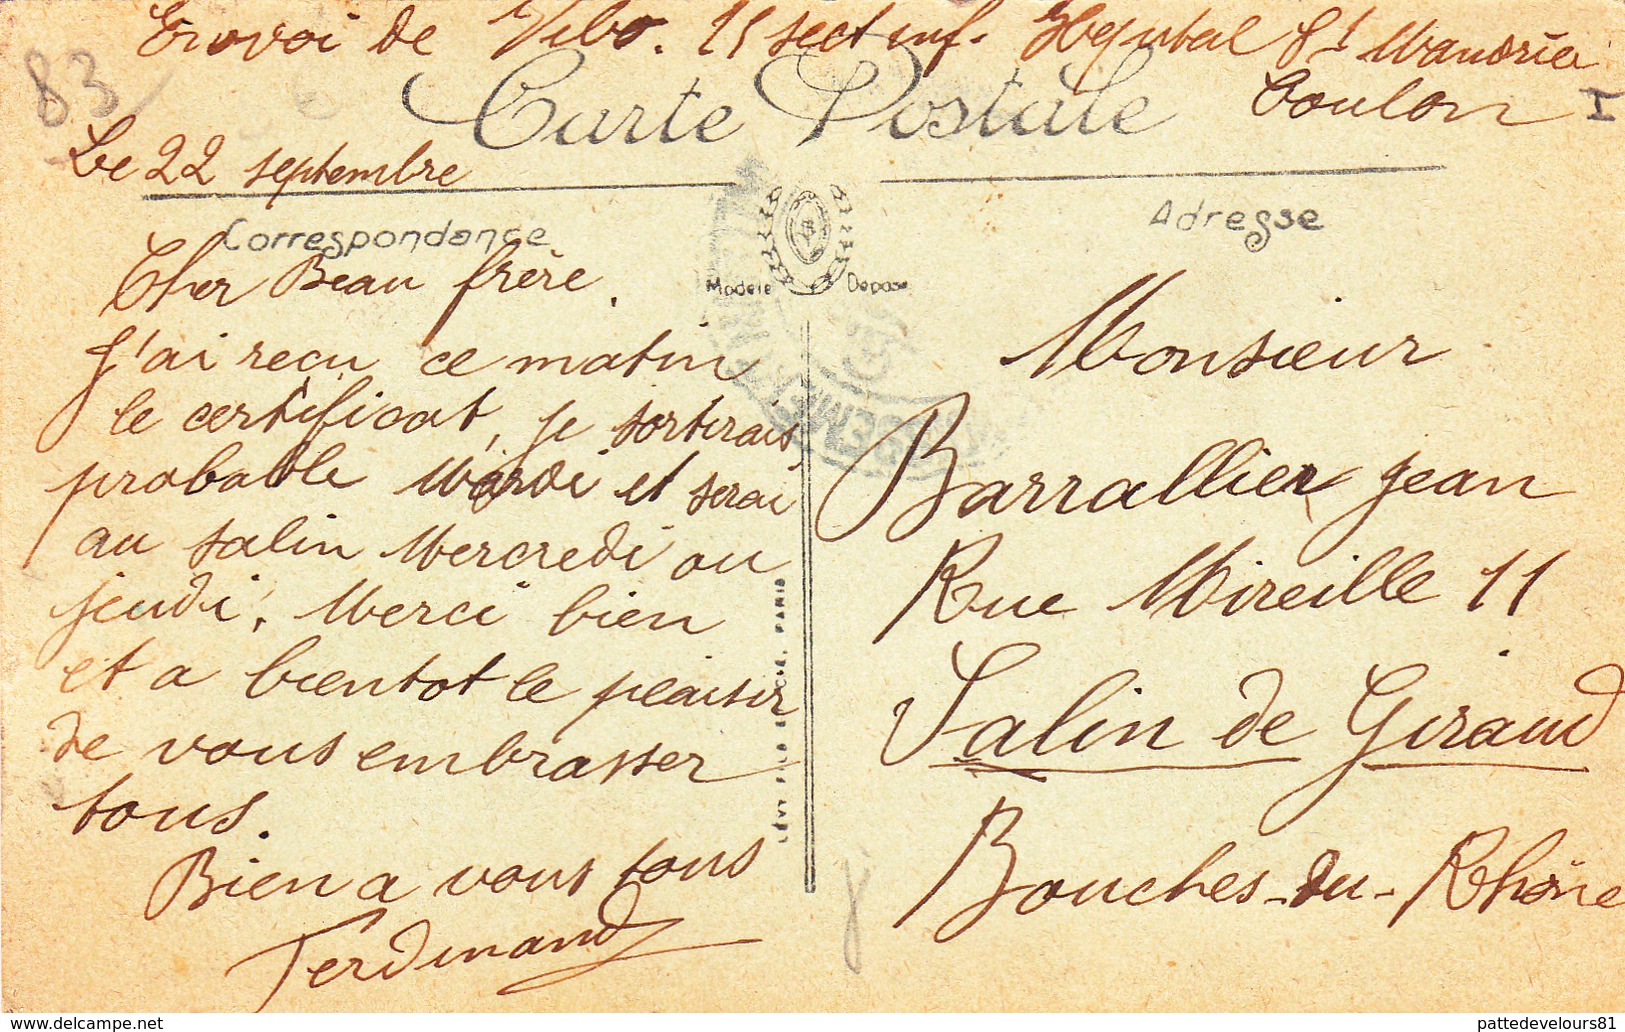 Envoi de Vibo. 15 sect inf. Hopital St Mandrier
Toulon I
83
Carte Postale
Le 22 septembre
Correspondance
Adresse
Modèle Déposé
Cher Beau frère,
J'ai reçu ce matin
le certificat, je sortirais
probable Mardi et serai
au salin Mercredi ou
jeudi. Merci bien
et a bientot le plaisir
de vous embrasser
tous.
Bien a vous tous
Ferdinand
LÉVY FILS ET CIE, PARIS
Monsieur
Barrallier Jean
Rue Mireille 11
Salin de Giraud
Bouches-du-Rhône
pattedevelours81